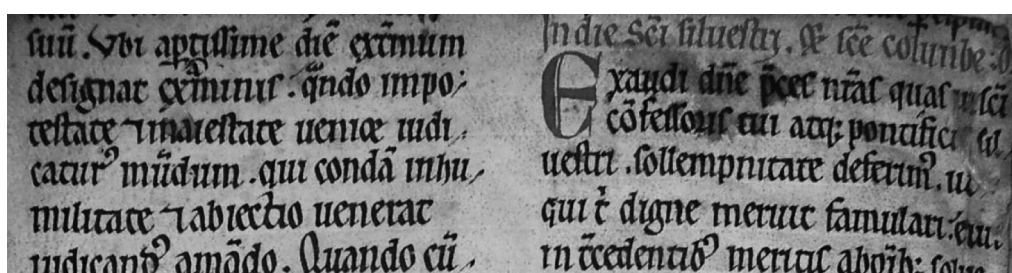 suū. Vbi aptissime diē ext̄mum
designat ext̄minii. q̄ndo impo-
testate ⁊ in maiestate ueniæ iudi-
catur' mūdum. qui condā in hu-
militate ⁊ abiectio uenerat
iudicand' amādo. Quando cū
In die Sc̄i siluestri. & sc̄e columbe
Exaudi dn̄e p̄ces nr̄as quas in sc̄i
cōfessoris tui atq; pontifici sil
uestri. sollempnitate deferim'. ut
qui t̄ digne meruit famulari. eiu.
in t̄cedentib' meritis ab